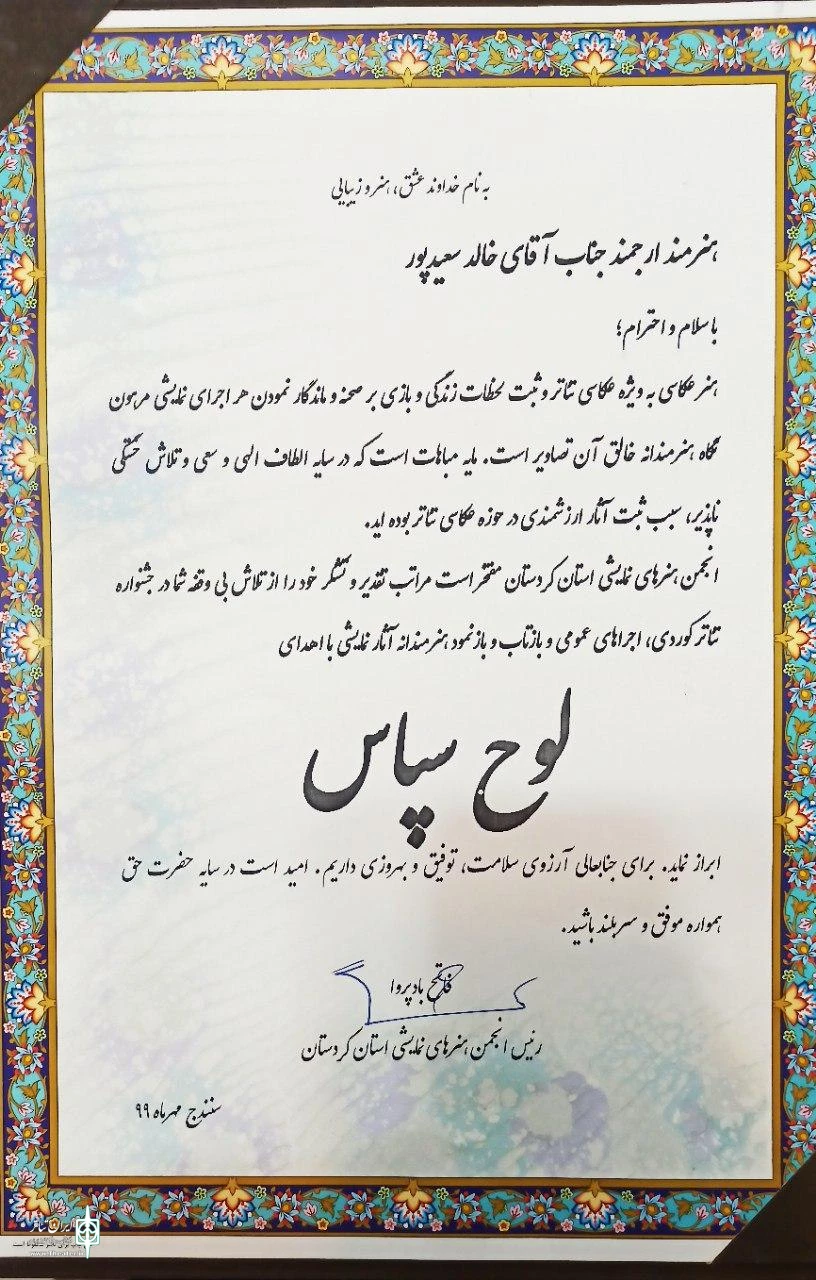 به نام خداوند عشق، هنر و زیبایی
هنرمند ارجمند جناب آقای خالد سعیدپور
با سلام و احترام؛
هنر عکاسی به ویژه عکاسی تئاتر و ثبت لحظات زندگی و بازی بر صحنه و ماندگار نمودن هر اجرای نمایشی مرهون
نگاه هنرمندانه خالق آن تصاویر است. مایه مباهات است که در سایه الطاف الهی و سعی و تلاش خستگی
ناپذیر، سبب ثبت آثار ارزشمندی در حوزه عکاسی تئاتر بوده اید.
انجمن هنرهای نمایشی استان کردستان مفتخر است مراتب تقدیر و تشکر خود را از تلاش بی وقفه شما در جشنواره
تئاتر کوردی، اجراهای عمومی و بازتاب و بازنمود هنرمندانه آثار نمایشی با اهدای
لوح سپاس
ابراز نماید. برای جنابعالی آرزوی سلامت، توفیق و بهروزی داریم. امید است در سایه حضرت حق
همواره موفق و سربلند باشید.
فاتح بادپروا
رئیس انجمن هنرهای نمایشی استان کردستان
سنندج مهرماه ۹۹
ایران تئاتر